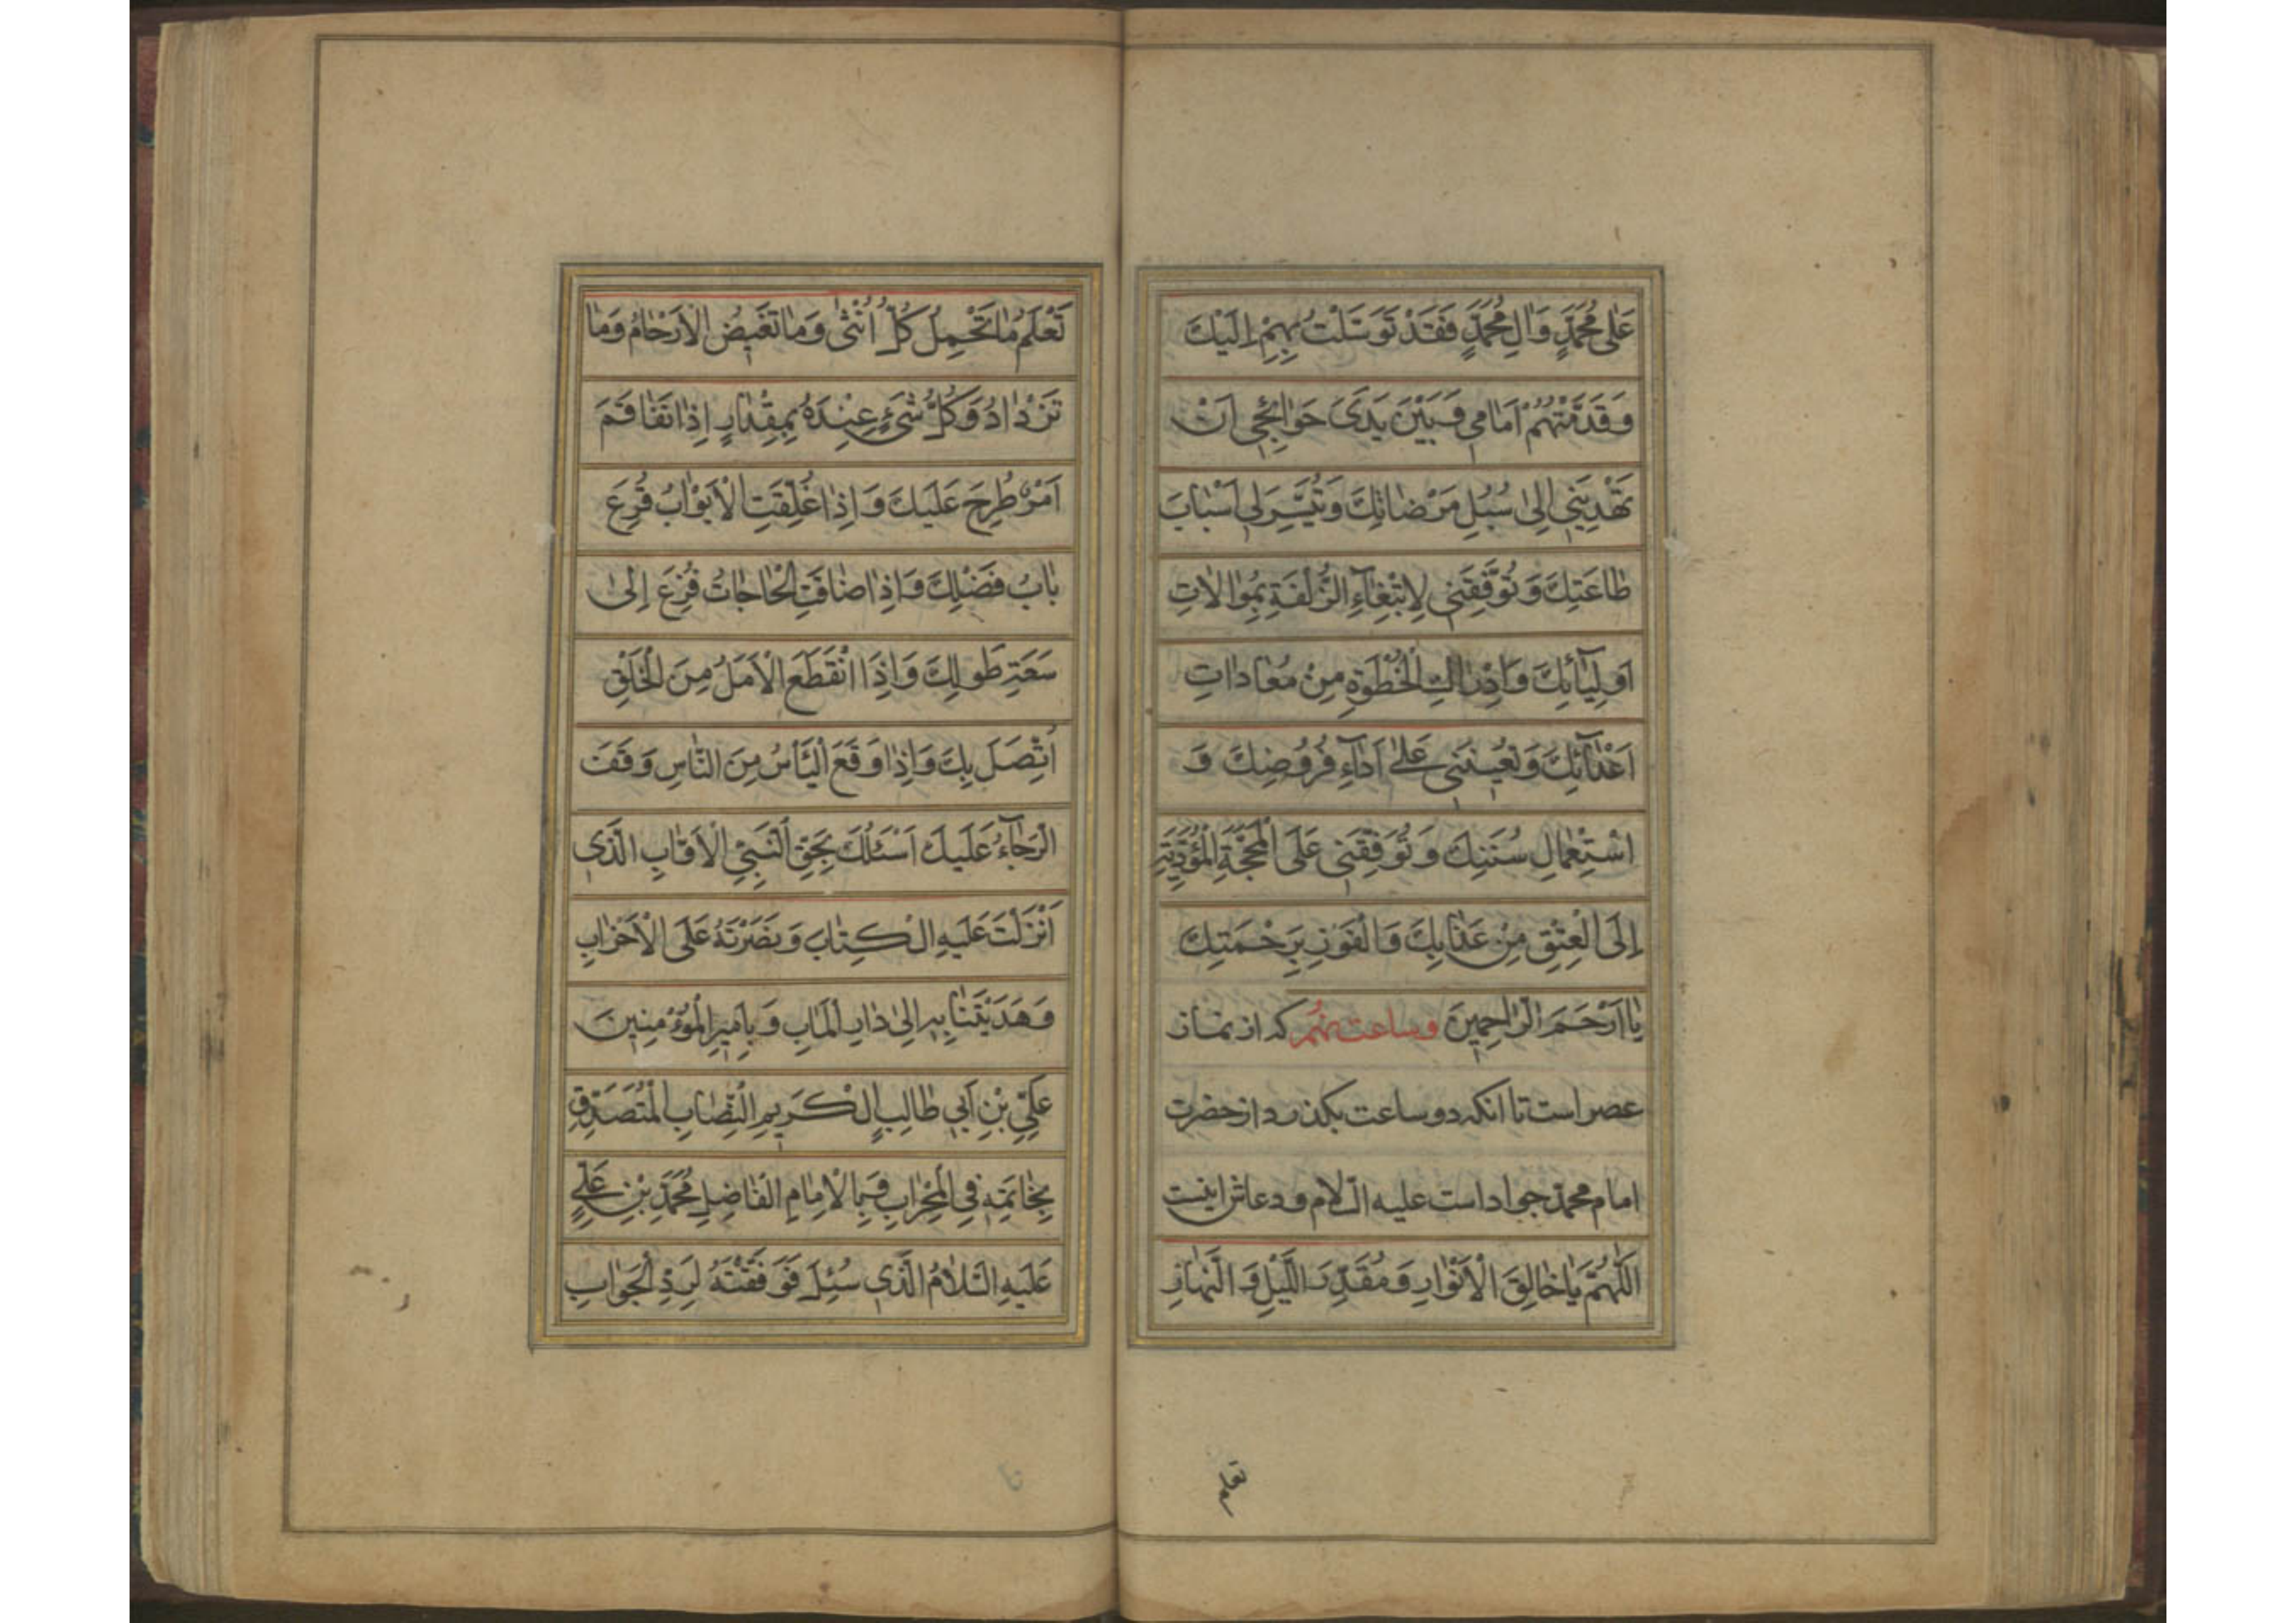 عَلٰى مُحَمَّدٍ وَاٰلِ مُحَمَّدٍ فَقَدْ تَوَسَّلْتُ بِهِمْ اِلَيْكَ
وَقَدَّمْتُهُمْ اَمَامي وَبَيْنَ يَدَىْ حَوٰائِجي اَنْ
تَهْدِيَنى اِلٰى سُبُلِ مَرْضٰاتِكَ وَتُيَسِّرَ لى اَسْبٰابَ
طٰاعَتِكَ وَتُوَفِّقَني لِابْتِغٰآءِ الزُّلْفَةِ بِمُوٰالٰاتِ
اَوْلِيٰآئِكَ وَاِدْرٰاكِ الْخُطْوَةِ مِنْ مُعٰادٰاتِ
اَعْدٰآئِكَ وَتُعينَني عَلٰى اَدٰآءِ فُرُوضِكَ وَ
اسْتِعْمٰالِ سُنَنِكَ وَتُوَفِّقَني عَلَى الْمَحَجَّةِ الْمُؤَدِّيَةِ
اِلَى الْعِتْقِ مِنْ عَذٰابِكَ وَالْفَوْزِ بِرَحْمَتِكَ
يٰا اَرْحَمَ الرّٰاحِمينَ وساعت نهم که از نماز
عصر است تا انکه دو ساعت بکذرد از حضرت
امام محمد جواد است علیه السلام و دعاش اینست
اَللّٰهُمَّ يٰا خٰالِقَ الْاَنْوٰارِ وَمُقَدِّرَ اللَّيْلِ وَ النَّهٰارِ
تَعْلَمُ مٰا تَحْمِلُ كُلُّ اُنْثٰى وَمٰا تَغيضُ الْاَرْحٰامُ وَمٰا
تَزْدٰادُ وَكُلُّ شَىْءٍ عِنْدَهُ بِمِقْدٰارٍ اِذٰا تَفٰاقَمَ
اَمْرٌ طُرِحَ عَلَيْكَ وَاِذٰا غُلِّقَتِ الْاَبْوٰابُ قُرِعَ
بٰابُ فَضْلِكَ وَاِذٰا ضٰاقَتِ الْحٰاجٰاتُ فُزِعَ اِلىٰ
سَعَةِ طَولِكَ وَاِذَا انْقَطَعَ الْاَمَلُ مِنَ الْخَلْقِ
اتَّصَلَ بِكَ وَاِذٰا وَقَعَ الْيَأْسُ مِنَ النّٰاسِ وَقَفَ
الرَّجٰآءُ عَلَيْكَ اَسْئَلُكَ بِحَقِّ النَّبِيِّ الْاَوّٰابِ الَّذى
اَنْزَلْتَ عَلَيْهِ الْكِتٰابَ وَنَصَرْتَهُ عَلَى الْاَحْزٰابِ
وَهَدَيْتَنٰا بِهِ اِلىٰ دٰارِ الْمَاٰبِ وَبِاَميرِ الْمُؤْمِنينَ
عَلِيِّ بْنِ اَبي طٰالِبٍ الْكَريمِ النِّصٰابِ الْمُتَصَدِّقِ
بِخٰاتَمِهِ فِي الْمِحْرٰابِ وَبِالْاِمٰامِ الْفٰاضِلِ مُحَمَّدِ بْنِ عَلِيٍّ
عَلَيْهِ السَّلٰامُ الَّذي سُئِلَ فَوَفَّقْتَهُ لِرَدِّ الْجَوٰابِ